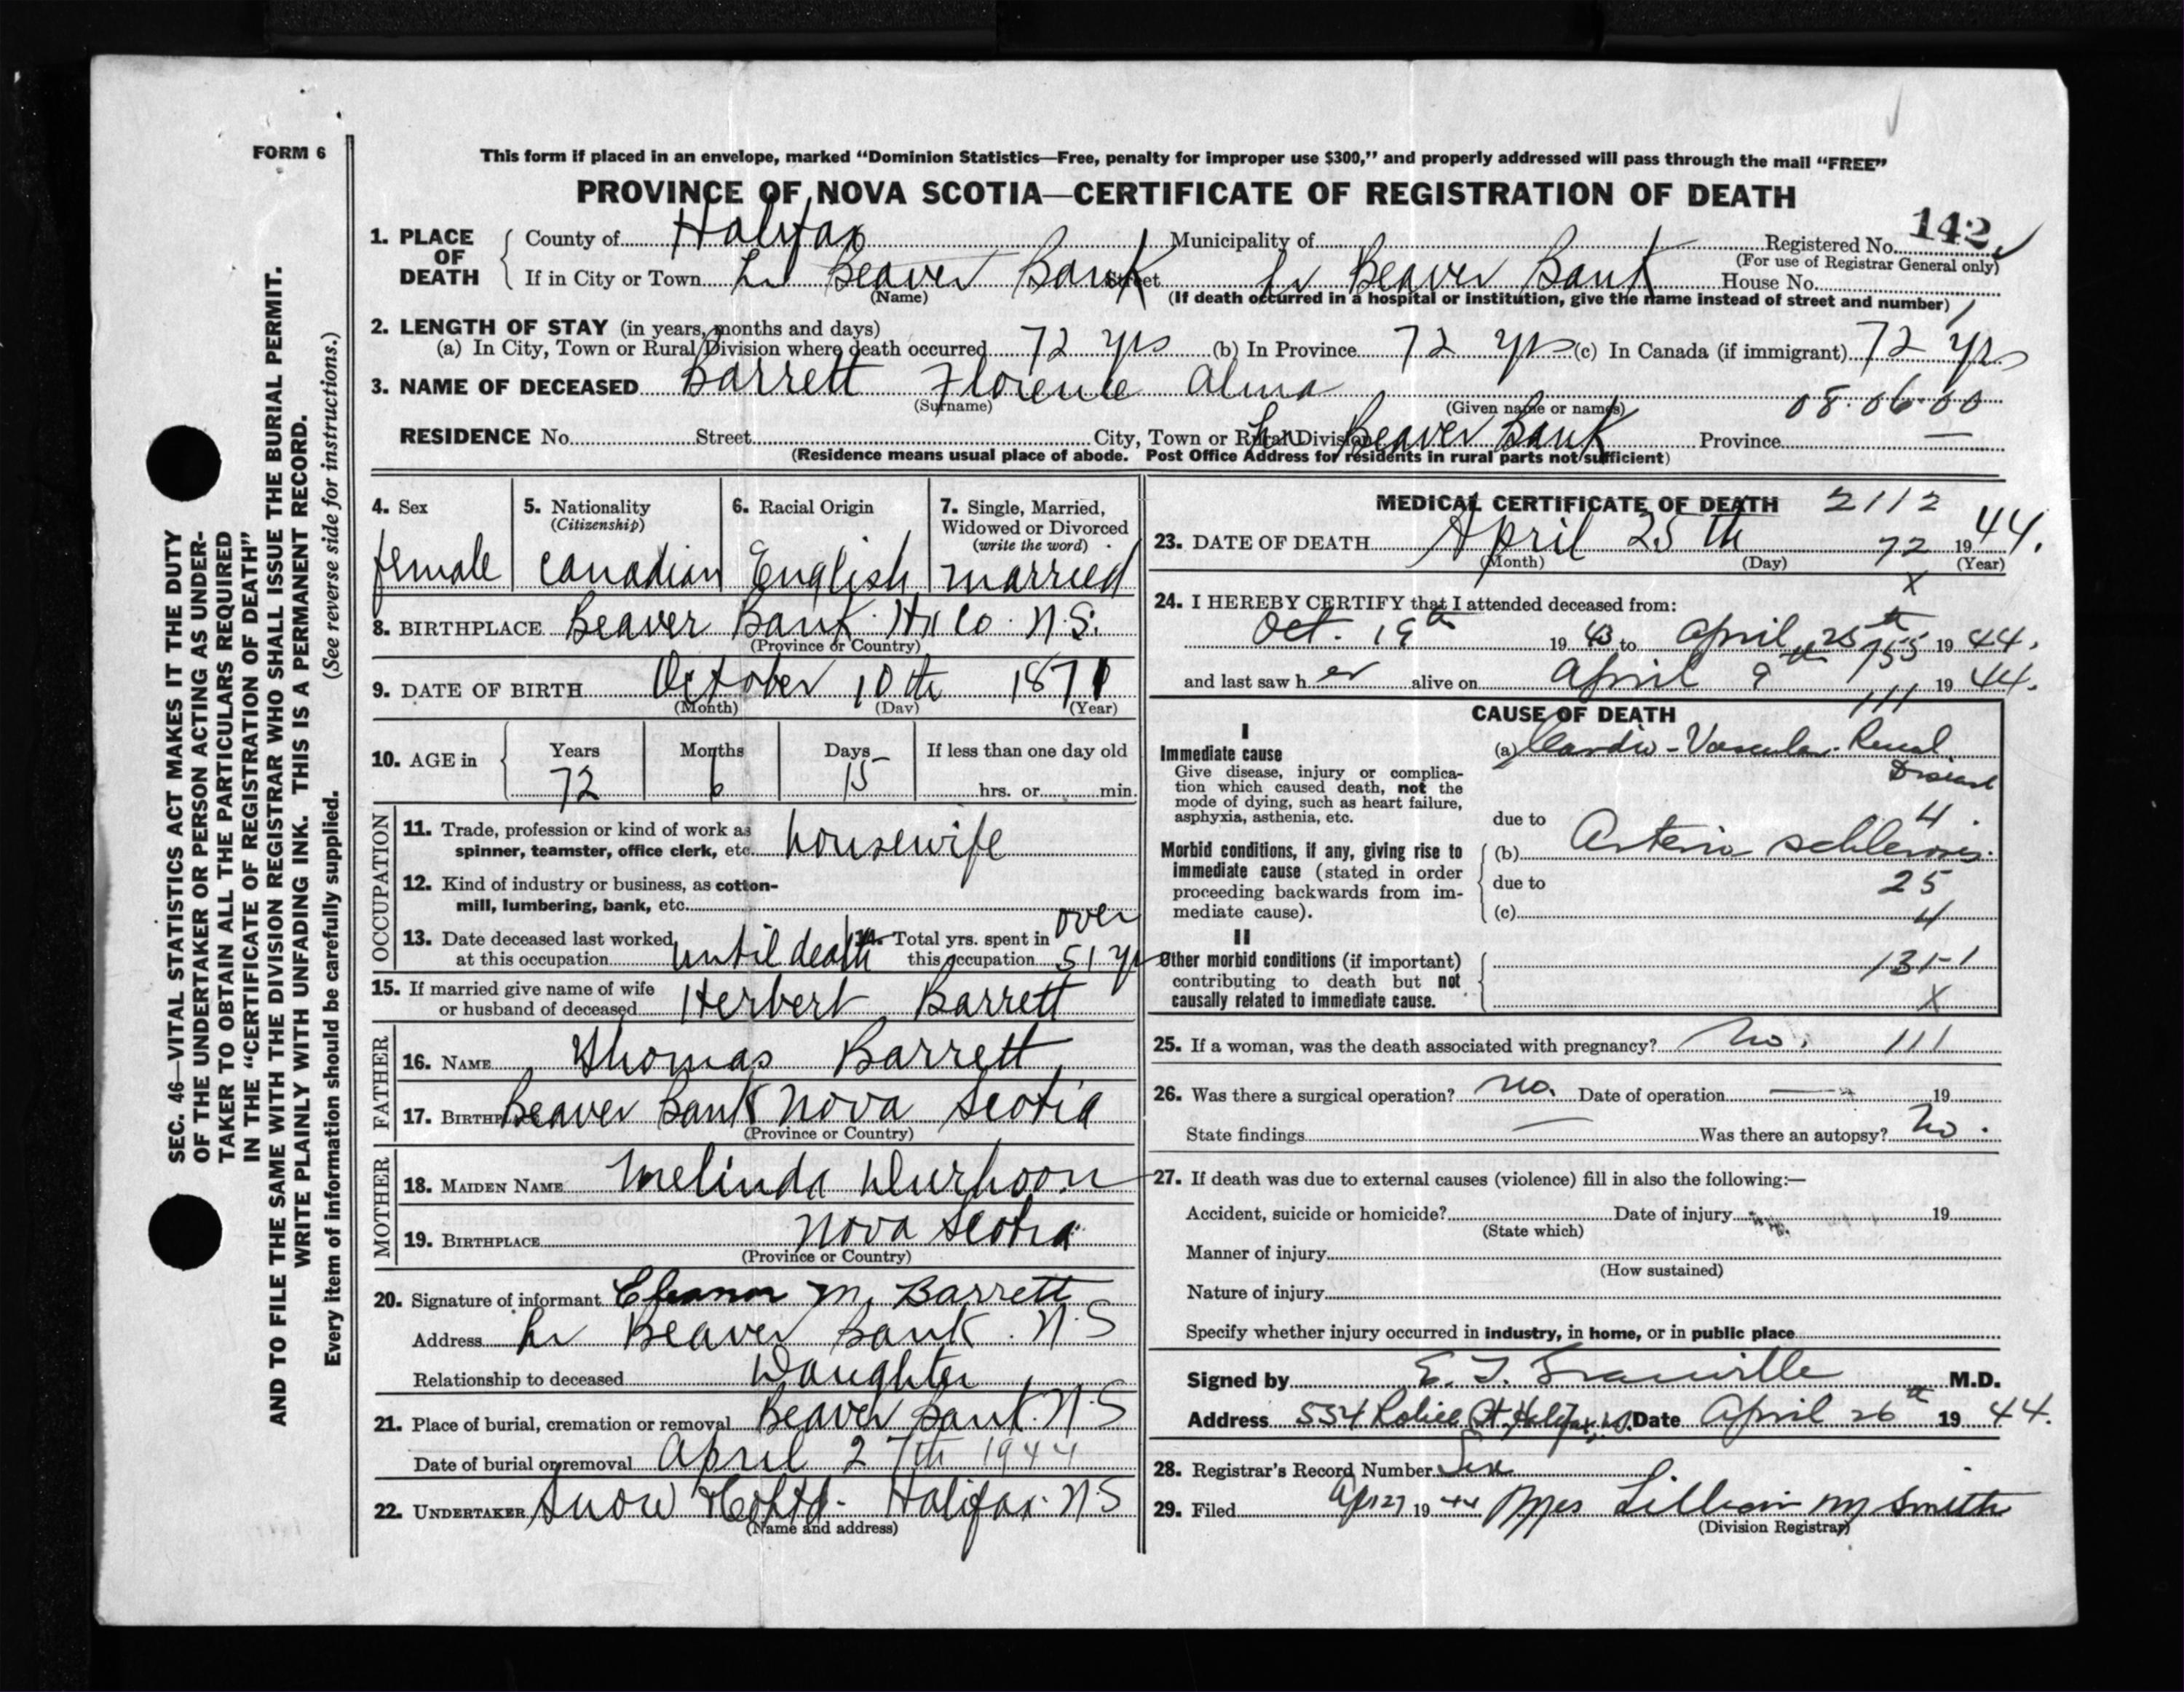 FORM 6
This form if placed in an envelope, marked “Dominion Statistics—Free, penalty for improper use $300,” and properly addressed will pass through the mail “FREE”
PROVINCE OF NOVA SCOTIA—CERTIFICATE OF REGISTRATION OF DEATH
1. PLACE OF DEATH County of Halifax Municipality of Registered No. 142
(For use of Registrar General only)
If in City or Town Lr Beaver Bank Street Lr Beaver Bank House No.
(Name) (If death occurred in a hospital or institution, give the name instead of street and number)
2. LENGTH OF STAY (in years, months and days)
(a) In City, Town or Rural Division where death occurred 72 yrs (b) In Province 72 yrs (c) In Canada (if immigrant) 72 yrs
3. NAME OF DECEASED Barrett Florence Alma
(Surname) (Given name or names) 08.06.00
RESIDENCE No. Street City, Town or Rural Division Lr Beaver Bank Province —
(Residence means usual place of abode. Post Office Address for residents in rural parts not sufficient)
4. Sex 5. Nationality (Citizenship) 6. Racial Origin 7. Single, Married, Widowed or Divorced (write the word)
female canadian English married
8. BIRTHPLACE Beaver Bank Hx Co. N.S.
(Province or Country)
9. DATE OF BIRTH October 10th 1871
(Month) (Day) (Year)
10. AGE in Years Months Days If less than one day old
72 6 15 hrs. or min.
OCCUPATION
11. Trade, profession or kind of work as
spinner, teamster, office clerk, etc. housewife
12. Kind of industry or business, as cotton-
mill, lumbering, bank, etc.
13. Date deceased last worked at this occupation until death 14. Total yrs. spent in this occupation over 51 yr
15. If married give name of wife
or husband of deceased Herbert Barrett
FATHER
16. NAME Thomas Barrett
17. BIRTHPLACE Beaver Bank Nova Scotia
(Province or Country)
MOTHER
18. MAIDEN NAME Melinda
19. BIRTHPLACE Nova Scotia
(Province or Country)
20. Signature of informant Eleanor M. Barrett
Address Lr Beaver Bank. N.S
Relationship to deceased Daughter
21. Place of burial, cremation or removal Beaver Bank. N.S
Date of burial or removal April 27th 1944
22. UNDERTAKER Snow & Co Ltd. Halifax. N.S
(Name and address)
MEDICAL CERTIFICATE OF DEATH 2112
23. DATE OF DEATH April 25th 72 1944.
(Month) (Day) (Year)
X
24. I HEREBY CERTIFY that I attended deceased from:
Oct. 19th 1943 to April 25th 1944.
155
and last saw her alive on April 9th 1944.
111
CAUSE OF DEATH
I
Immediate cause (a) Cardio-Vascular-Renal Disease
Give disease, injury or complica-
tion which caused death, not the
mode of dying, such as heart failure,
asphyxia, asthenia, etc. due to 4.
Morbid conditions, if any, giving rise to
immediate cause (stated in order
proceeding backwards from im-
mediate cause).
(b) Arterio schlerosis.
due to 25
(c) 4
II
Other morbid conditions (if important)
contributing to death but not
causally related to immediate cause.
131-1
X
25. If a woman, was the death associated with pregnancy? No. 111
26. Was there a surgical operation? no. Date of operation — 19
State findings — Was there an autopsy? No.
27. If death was due to external causes (violence) fill in also the following:—
Accident, suicide or homicide? Date of injury 19
(State which)
Manner of injury
(How sustained)
Nature of injury
Specify whether injury occurred in industry, in home, or in public place
Signed by E. T. Granville M.D.
Address 554 St, Halifax, Date April 26th 1944.
28. Registrar's Record Number Six
29. Filed Apr 27 1944 Mrs Lillian M Smith
(Division Registrar)
SEC. 46—VITAL STATISTICS ACT MAKES IT THE DUTY
OF THE UNDERTAKER OR PERSON ACTING AS UNDER-
TAKER TO OBTAIN ALL THE PARTICULARS REQUIRED
IN THE “CERTIFICATE OF REGISTRATION OF DEATH”
AND TO FILE THE SAME WITH THE DIVISION REGISTRAR WHO SHALL ISSUE THE BURIAL PERMIT.
WRITE PLAINLY WITH UNFADING INK. THIS IS A PERMANENT RECORD.
Every item of information should be carefully supplied. (See reverse side for instructions.)